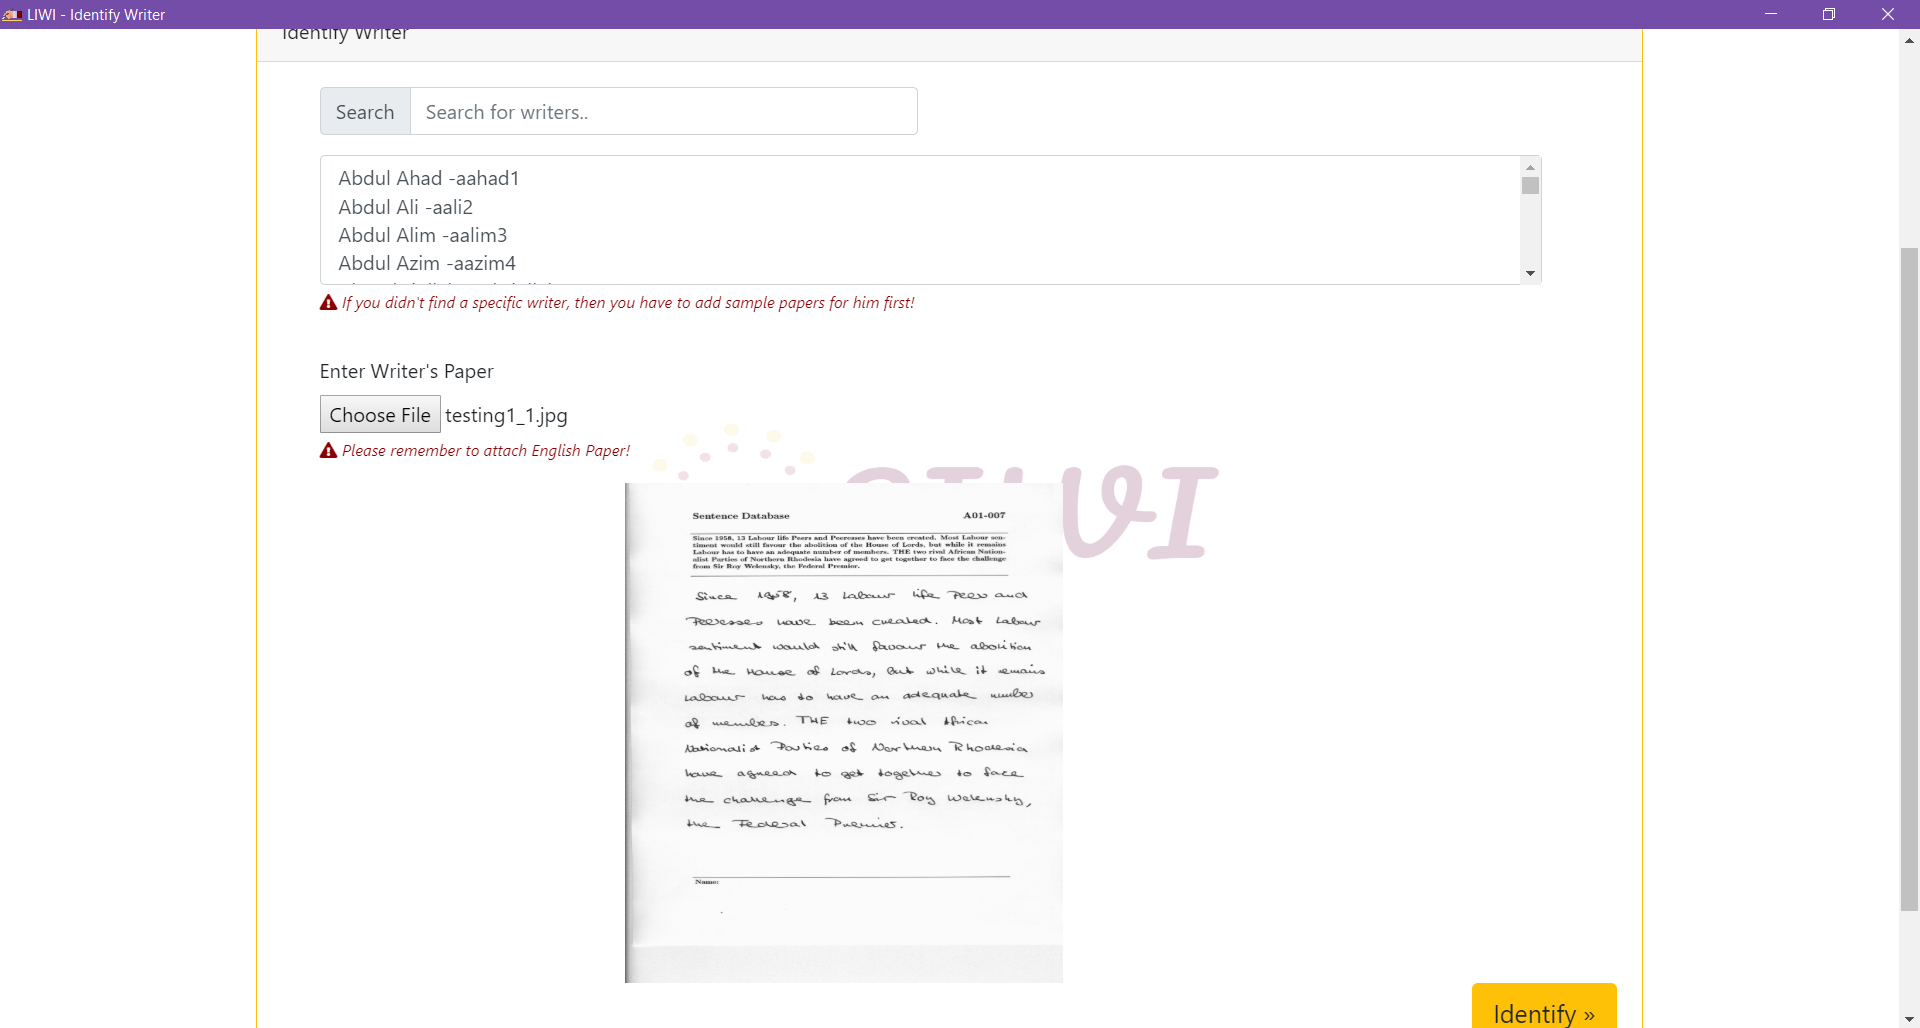 LIWI - Identify Writer
Identify Writer
Search
Search for writers..
Abdul Ahad -aahad1
Abdul Ali -aali2
Abdul Alim -aalim3
Abdul Azim -aazim4
If you didn't find a specific writer, then you have to add sample papers for him first!
Enter Writer's Paper
Choose File testing1_1.jpg
Please remember to attach English Paper!
Sentence Database A01-007
Since 1958, 13 Labour life Peers and Peeresses have been created. Most Labour sen-
timent would still favour the abolition of the House of Lords, but while it remains
Labour has to have an adequate number of members. THE two rival African Nation-
alist Parties of Northern Rhodesia have agreed to get together to face the challenge
from Sir Roy Welensky, the Federal Premier.
Since 1958, 13 Labour life Peers and
Peeresses have been created. Most Labour
sentiment would still favour the abolition
of the House of Lords, but while it remains
Labour has to have an adequate number
of members. THE two rival African
Nationalist Parties of Northern Rhodesia
have agreed to get together to face
the challenge from Sir Roy Welensky,
the Federal Premier.
Name:
Identify »